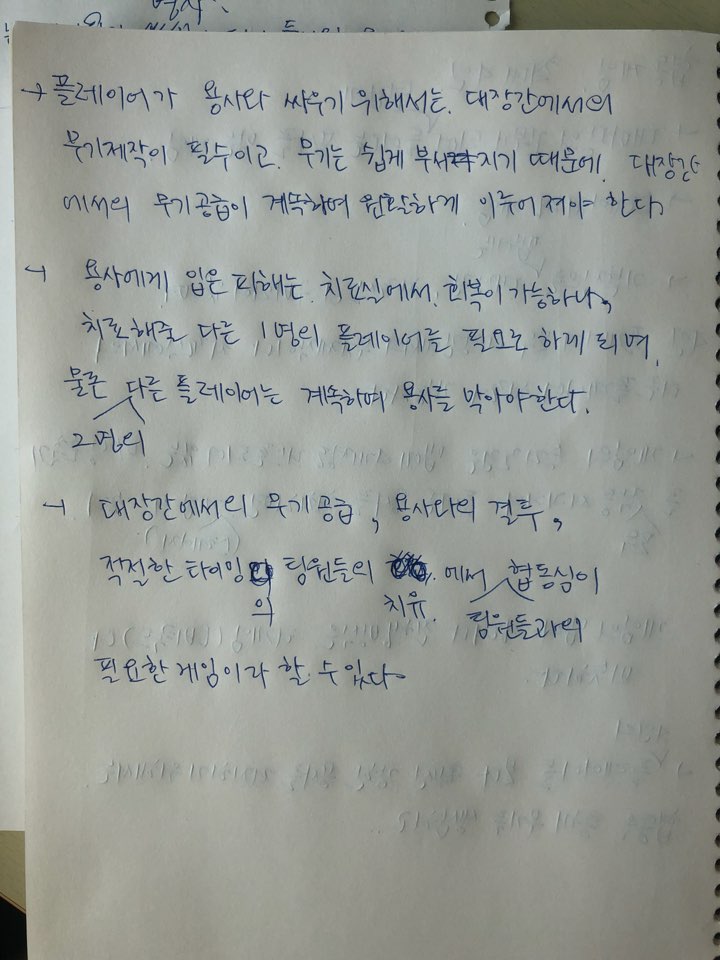 → 플레이어가 용사와 싸우기 위해서는, 대장간에서의
무기제작이 필수이고, 무기는 쉽게 부서지기 때문에, 대장간
에서의 무기공급이 계속하여 원활하게 이루어져야 한다.
→ 용사에게 입은 피해는, 치료실에서, 회복이 가능하나,
치료해줄 다른 1명의 플레이어를 필요로 하게 되며,
물론 다른 플레이어는 계속하여 용사를 막아야한다.
2명의
→ 대장간에서의 무기공급, 용사와의 결투,
적절한 타이밍 팀원들의 에서 협동심이
의 치유. 팀원들과의
필요한 게임이라 할 수 있다.